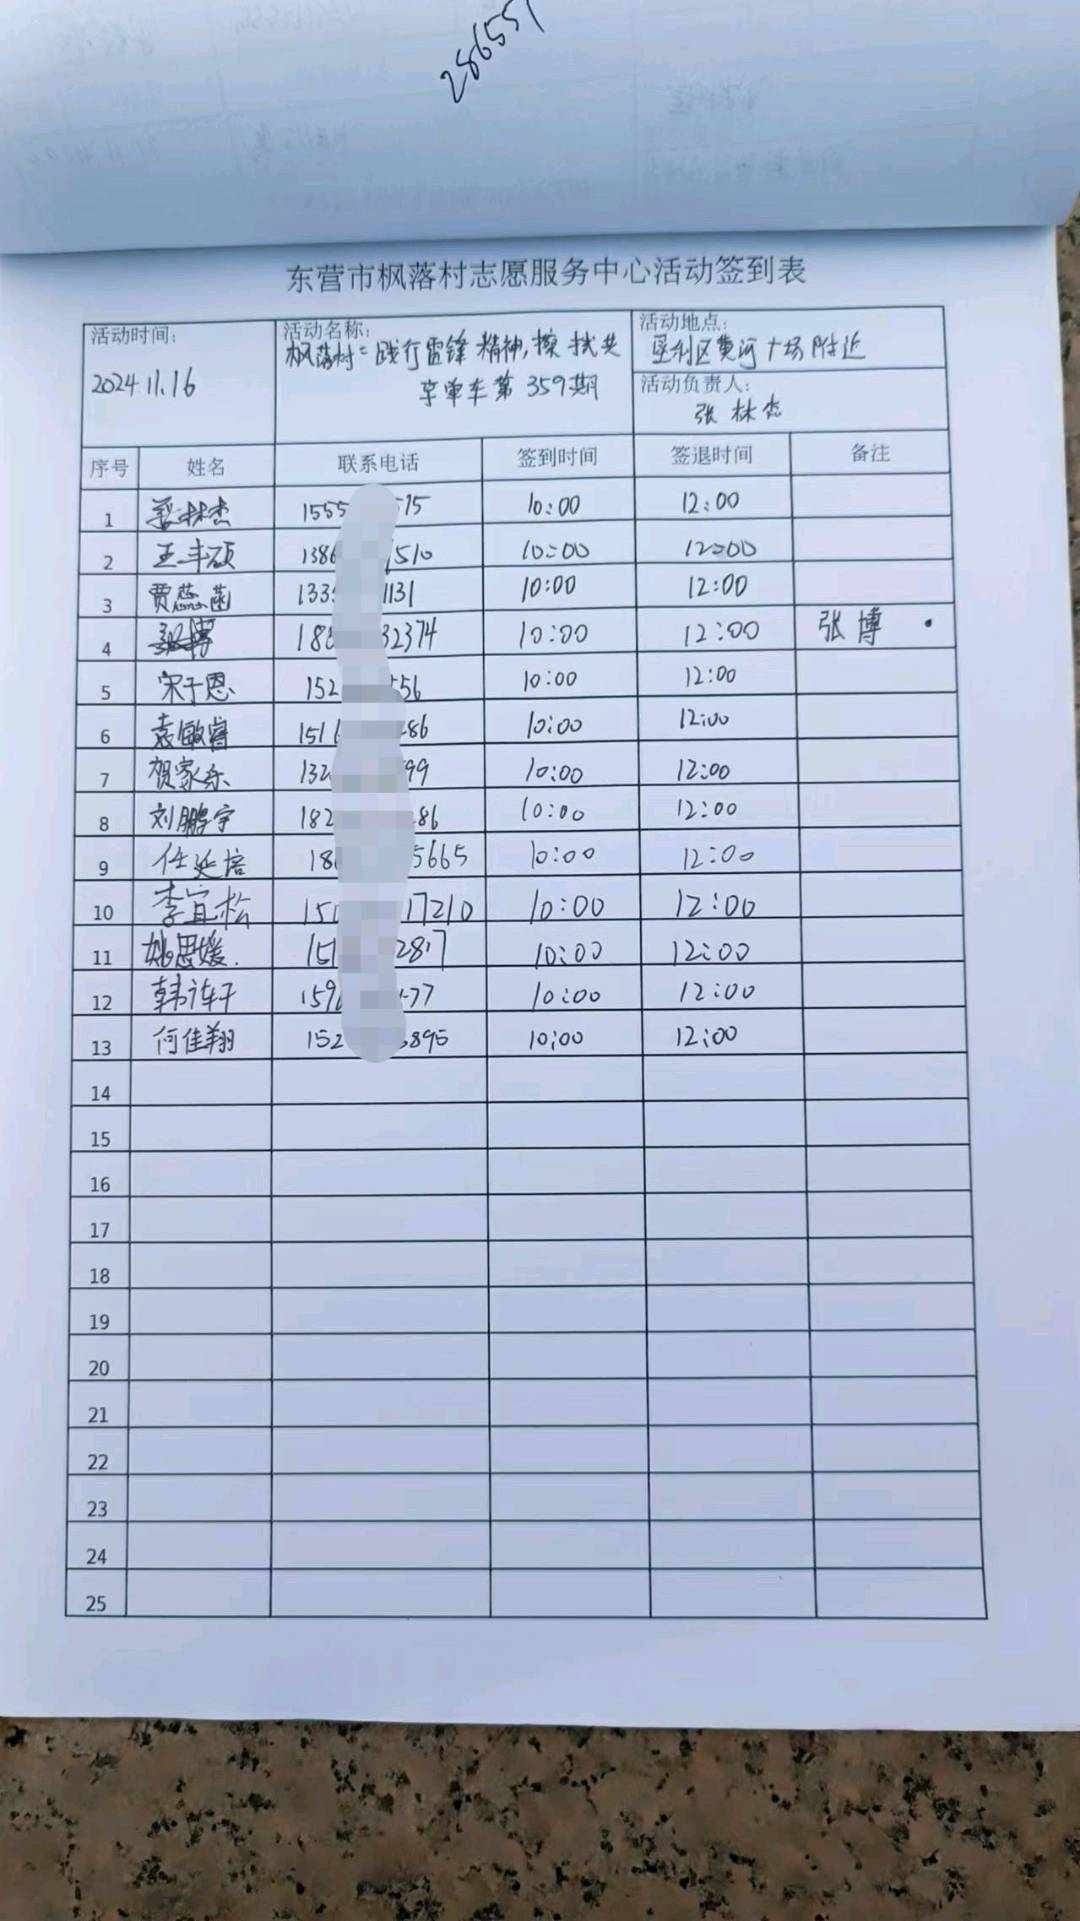 286551
东营市枫落村志愿服务中心活动签到表
活动时间：
2024.11.16
活动名称：
枫落村=践行雷锋精神,擦拭共
享单车第359期
活动地点：
垦利区黄河广场附近
活动负责人：
张林杰
序号 姓名 联系电话 签到时间 签退时间 备注
1 林杰 1555 575 10:00 12:00
2 王丰硕 138 510 10:00 12:00
3 贾蕊菡 133 1131 10:00 12:00
4 18 32374 10:00 12:00 张博
5 宋子恩 152 556 10:00 12:00
6 袁敏睿 151 286 10:00 12:00
7 贺家乐 132 99 10:00 12:00
8 刘鹏宇 182 286 10:00 12:00
9 任延培 18 5665 10:00 12:00
10 李宜松 15 17210 10:00 12:00
11 姚思媛. 151 2817 10:00 12:00
12 韩 159 77 10:00 12:00
13 何佳翔 152 895 10:00 12:00
14
15
16
17
18
19
20
21
22
23
24
25